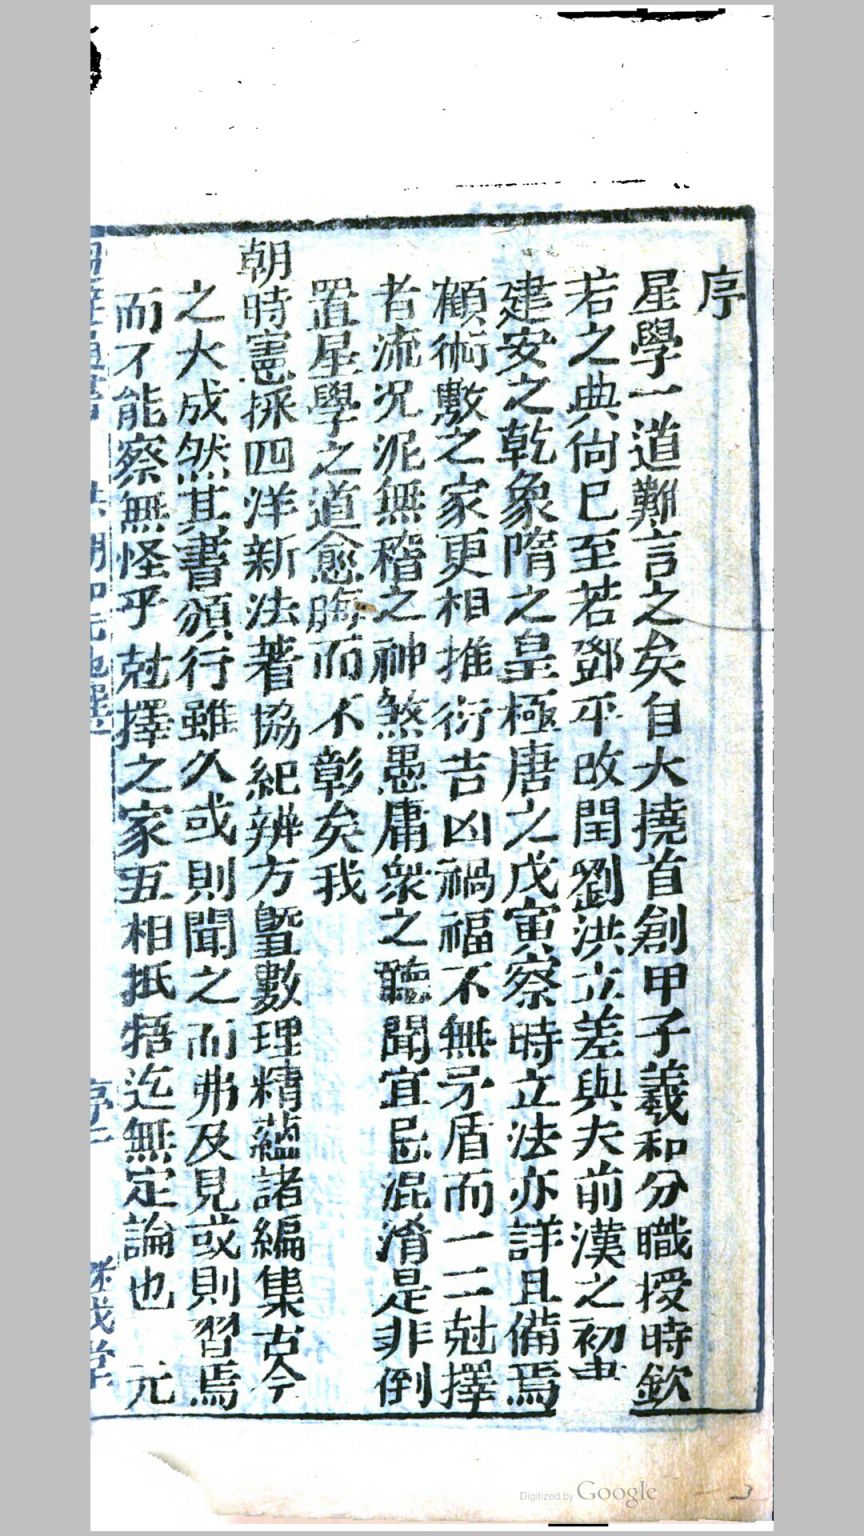 序
星學一道難言之矣自大撓首創甲子羲和分職授時欽
若之典尙已至若鄧平改閏劉洪立差與夫前漢之初蜀
建安之乾象隋之皇極唐之戊寅察時立法亦詳且備焉
顧術數之家更相推衍吉凶禍福不無矛盾而一二尅擇
者流况泥無稽之神煞愚庸衆之聽聞宜忌混淆是非倒
置星學之道愈晦而不彰矣我
朝時憲採四洋新法著協紀辨方曁數理精蘊諸編集古今
之大成然其書頒行雖久或則聞之而弗及見或則習焉
而不能察無怪乎尅擇之家互相抵牾迄無定論也 元
序一
繼成堂
Digitized by Google